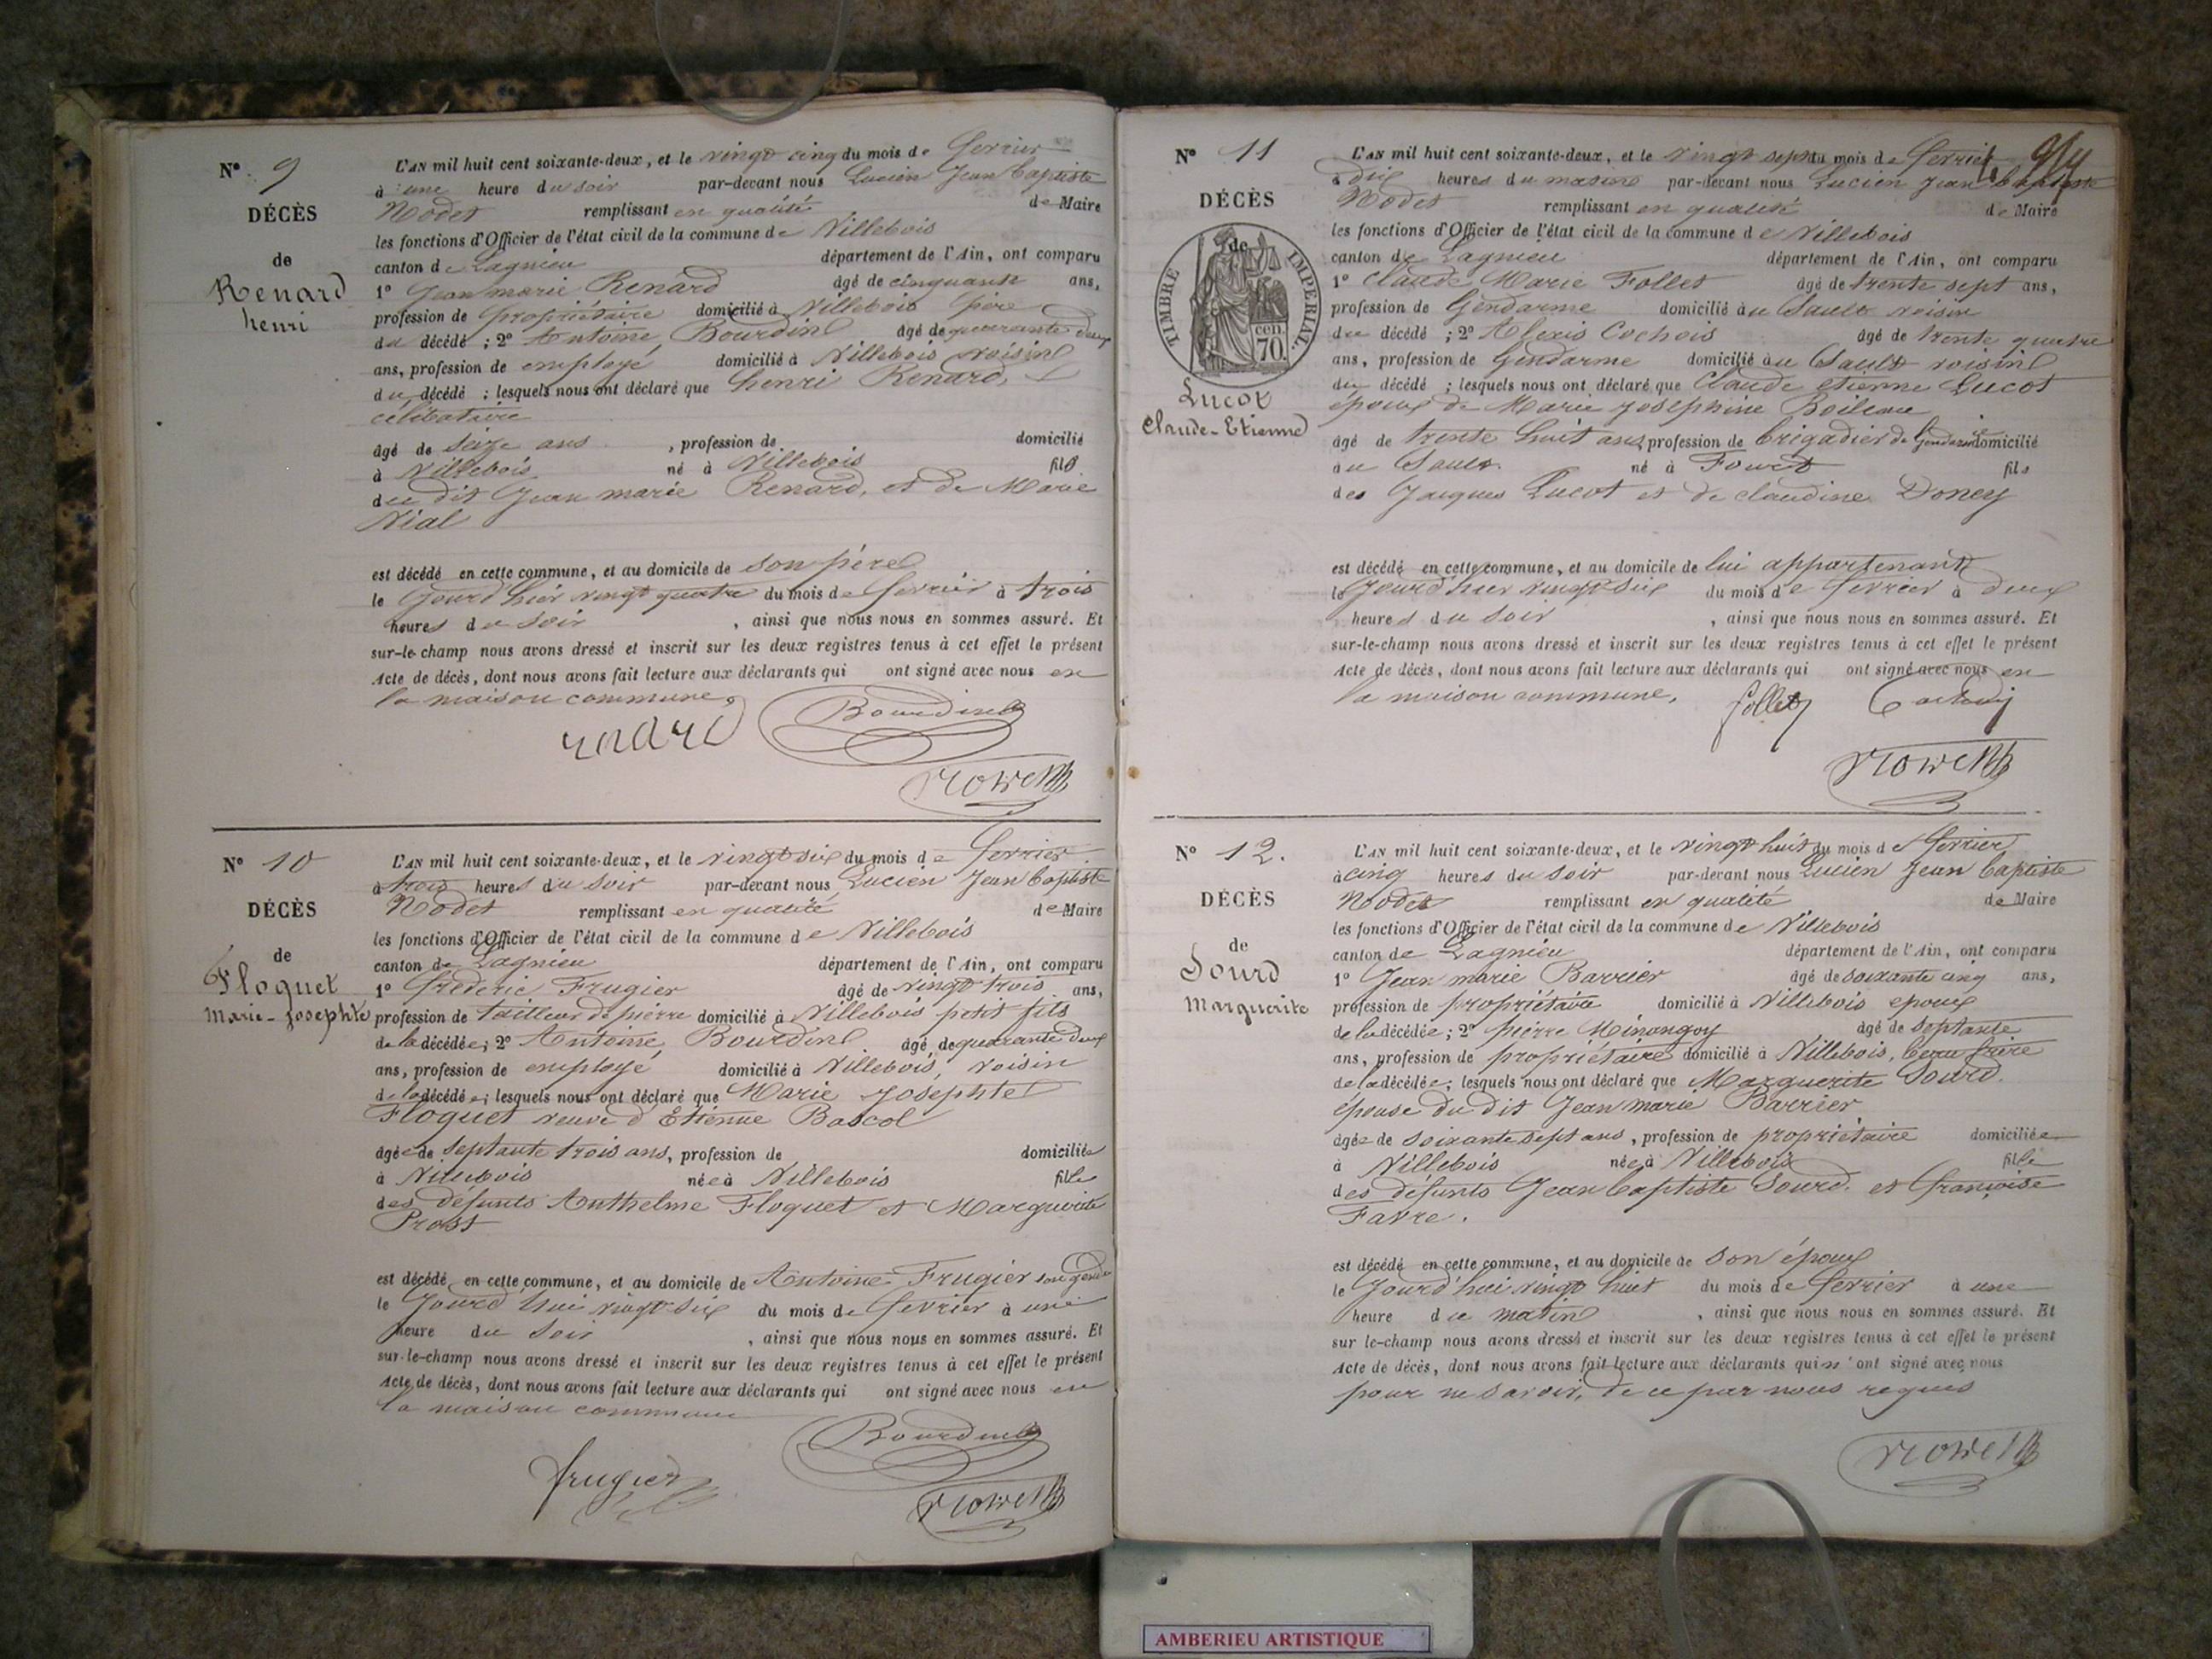 N° 9
DÉCÈS
de
Renard
henri
L'AN mil huit cent soixante-deux, et le vingt cinq du mois de fevrier
à une heure du soir par-devant nous Lucien Jean baptiste
Nodet remplissant en qualité de Maire
les fonctions d'Officier de l'état civil de la commune de Villebois
canton de Lagnieu département de l'Ain, ont comparu
1° Jean marie Renard âgé de cinquante ans,
profession de propriétaire domicilié à Villebois père
du décédé ; 2° Antoine Bourdin âgé de quarante deux
ans, profession de employé domicilié à Villebois voisin
du décédé ; lesquels nous ont déclaré que henri Renard,
célibataire
âgé de seize ans , profession de domicilié
à Villebois né à Villebois fils
du dit Jean marie Renard, et de Marie
Vial
est décédé en cette commune, et au domicile de son père
le Jourd'hier vingt quatre du mois de fevrier à trois
heures du soir , ainsi que nous nous en sommes assuré. Et
sur-le-champ nous avons dressé et inscrit sur les deux registres tenus à cet effet le présent
Acte de décès, dont nous avons fait lecture aux déclarants qui ont signé avec nous en
la maison commune.
Bourdin
N° 10
DÉCÈS
de
Floquet
Marie-Josephte
L'AN mil huit cent soixante-deux, et le vingt six du mois de fevrier
à trois heures du soir par-devant nous Lucien Jean baptiste
Nodet remplissant en qualité de Maire
les fonctions d'Officier de l'état civil de la commune de Villebois
canton de Lagnieu département de l'Ain, ont comparu
1° frederic Frugier âgé de vingt trois ans,
profession de tailleur de pierre domicilié à Villebois petit fils
de la décédée; 2° Antoine Bourdin âgé de quarante deux
ans, profession de employé domicilié à Villebois, voisin
de la décédée; lesquels nous ont déclaré que Marie Josephte
Floquet veuve d'Etienne Bascol
âgée de septante trois ans, profession de domiciliée
à Villebois née à Villebois fille
des défunts Anthelme Floquet et Marguerite
Prost
est décédé en cette commune, et au domicile de Antoine Frugier son gendre
le Jourd'hui vingt six du mois de fevrier à une
heure du soir , ainsi que nous nous en sommes assuré. Et
sur-le-champ nous avons dressé et inscrit sur les deux registres tenus à cet effet le présent
Acte de décès, dont nous avons fait lecture aux déclarants qui ont signé avec nous en
la maison commune
Bourdin
frugier
N° 11
DÉCÈS
de
TIMBRE IMPÉRIAL
cen.
70.
Lucot
Claude-Etienne
L'AN mil huit cent soixante-deux, et le vingt sept du mois de fevrier
à dix heures du matin par-devant nous Lucien Jean baptiste
Nodet remplissant en qualité de Maire
les fonctions d'Officier de l'état civil de la commune de Villebois
canton de Lagnieu département de l'Ain, ont comparu
1° Claude Marie Follet âgé de trente sept ans,
profession de Gendarme domicilié au Sault voisin
du décédé ; 2° Alexis Cochois âgé de trente quatre
ans, profession de Gendarme domicilié au Sault voisin
du décédé ; lesquels nous ont déclaré que Claude etienne Lucot
époux de Marie Josephine Boileau
âgé de trente huit ans, profession de brigadier de Gendarmie domicilié
au Sault né à fils
des Jacques Lucot et de claudine Doney
est décédé en cette commune, et au domicile de lui appartenant
le Jourd'hier vingt six du mois de fevrier à deux
heures du soir , ainsi que nous nous en sommes assuré. Et
sur-le-champ nous avons dressé et inscrit sur les deux registres tenus à cet effet le présent
Acte de décès, dont nous avons fait lecture aux déclarants qui ont signé avec nous en
la maison commune.
follet
N° 12.
DÉCÈS
de
Sourd
Marguerite
L'AN mil huit cent soixante-deux, et le vingt huit du mois de fevrier
à cinq heures du soir par-devant nous Lucien Jean baptiste
Nodet remplissant en qualité de Maire
les fonctions d'Officier de l'état civil de la commune de Villebois
canton de Lagnieu département de l'Ain, ont comparu
1° Jean marie Barrier âgé de soixante cinq ans,
profession de propriétaire domicilié à Villebois epoux
de la décédée; 2° pierre Minangoy âgé de septante
ans, profession de propriétaire domicilié à Villebois, beau frère
de la décédée; lesquels nous ont déclaré que Marguerite Sourd.
épouse du dit Jean marie Barrier
âgée de soixante sept ans, profession de propriétaire domiciliée
à Villebois née à Villebois fille
des défunts Jean baptiste Sourd. et françoise
Favre.
est décédé en cette commune, et au domicile de son époux
le Jourd'hui vingt huit du mois de fevrier à une
heure du matin , ainsi que nous nous en sommes assuré. Et
sur le-champ nous avons dressé et inscrit sur les deux registres tenus à cet effet le présent
Acte de décès, dont nous avons fait lecture aux déclarants qui n'ont signé avec nous
pour ne savoir, de ce par nous requis
AMBERIEU ARTISTIQUE